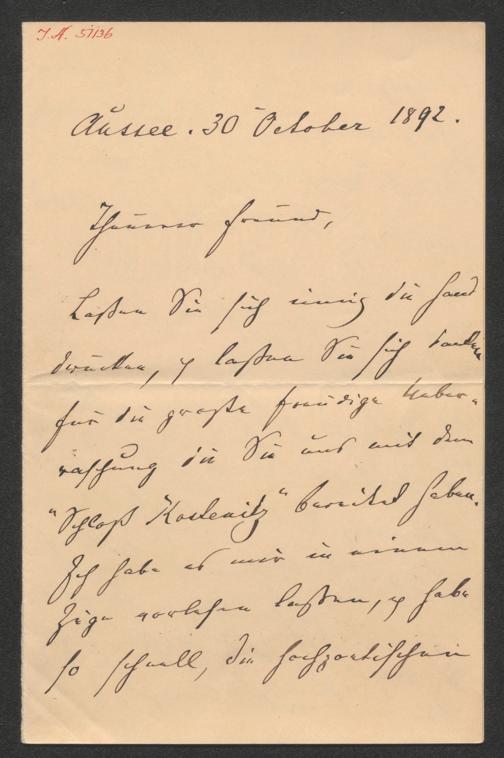 J.N. 57136
Aussee. 30 October 1892.
Theurer Freund,
Laßen Sie sich innig die Hand
drücken, & laßen Sie sich danken
für die große freudige Ueber-
raschung die Sie uns mit dem
"Schloß Kostenitz" bereitet haben.
Ich habe es mir in einem
Zuge vorlesen laßen, & habe
so schnell, die hochpoetischen